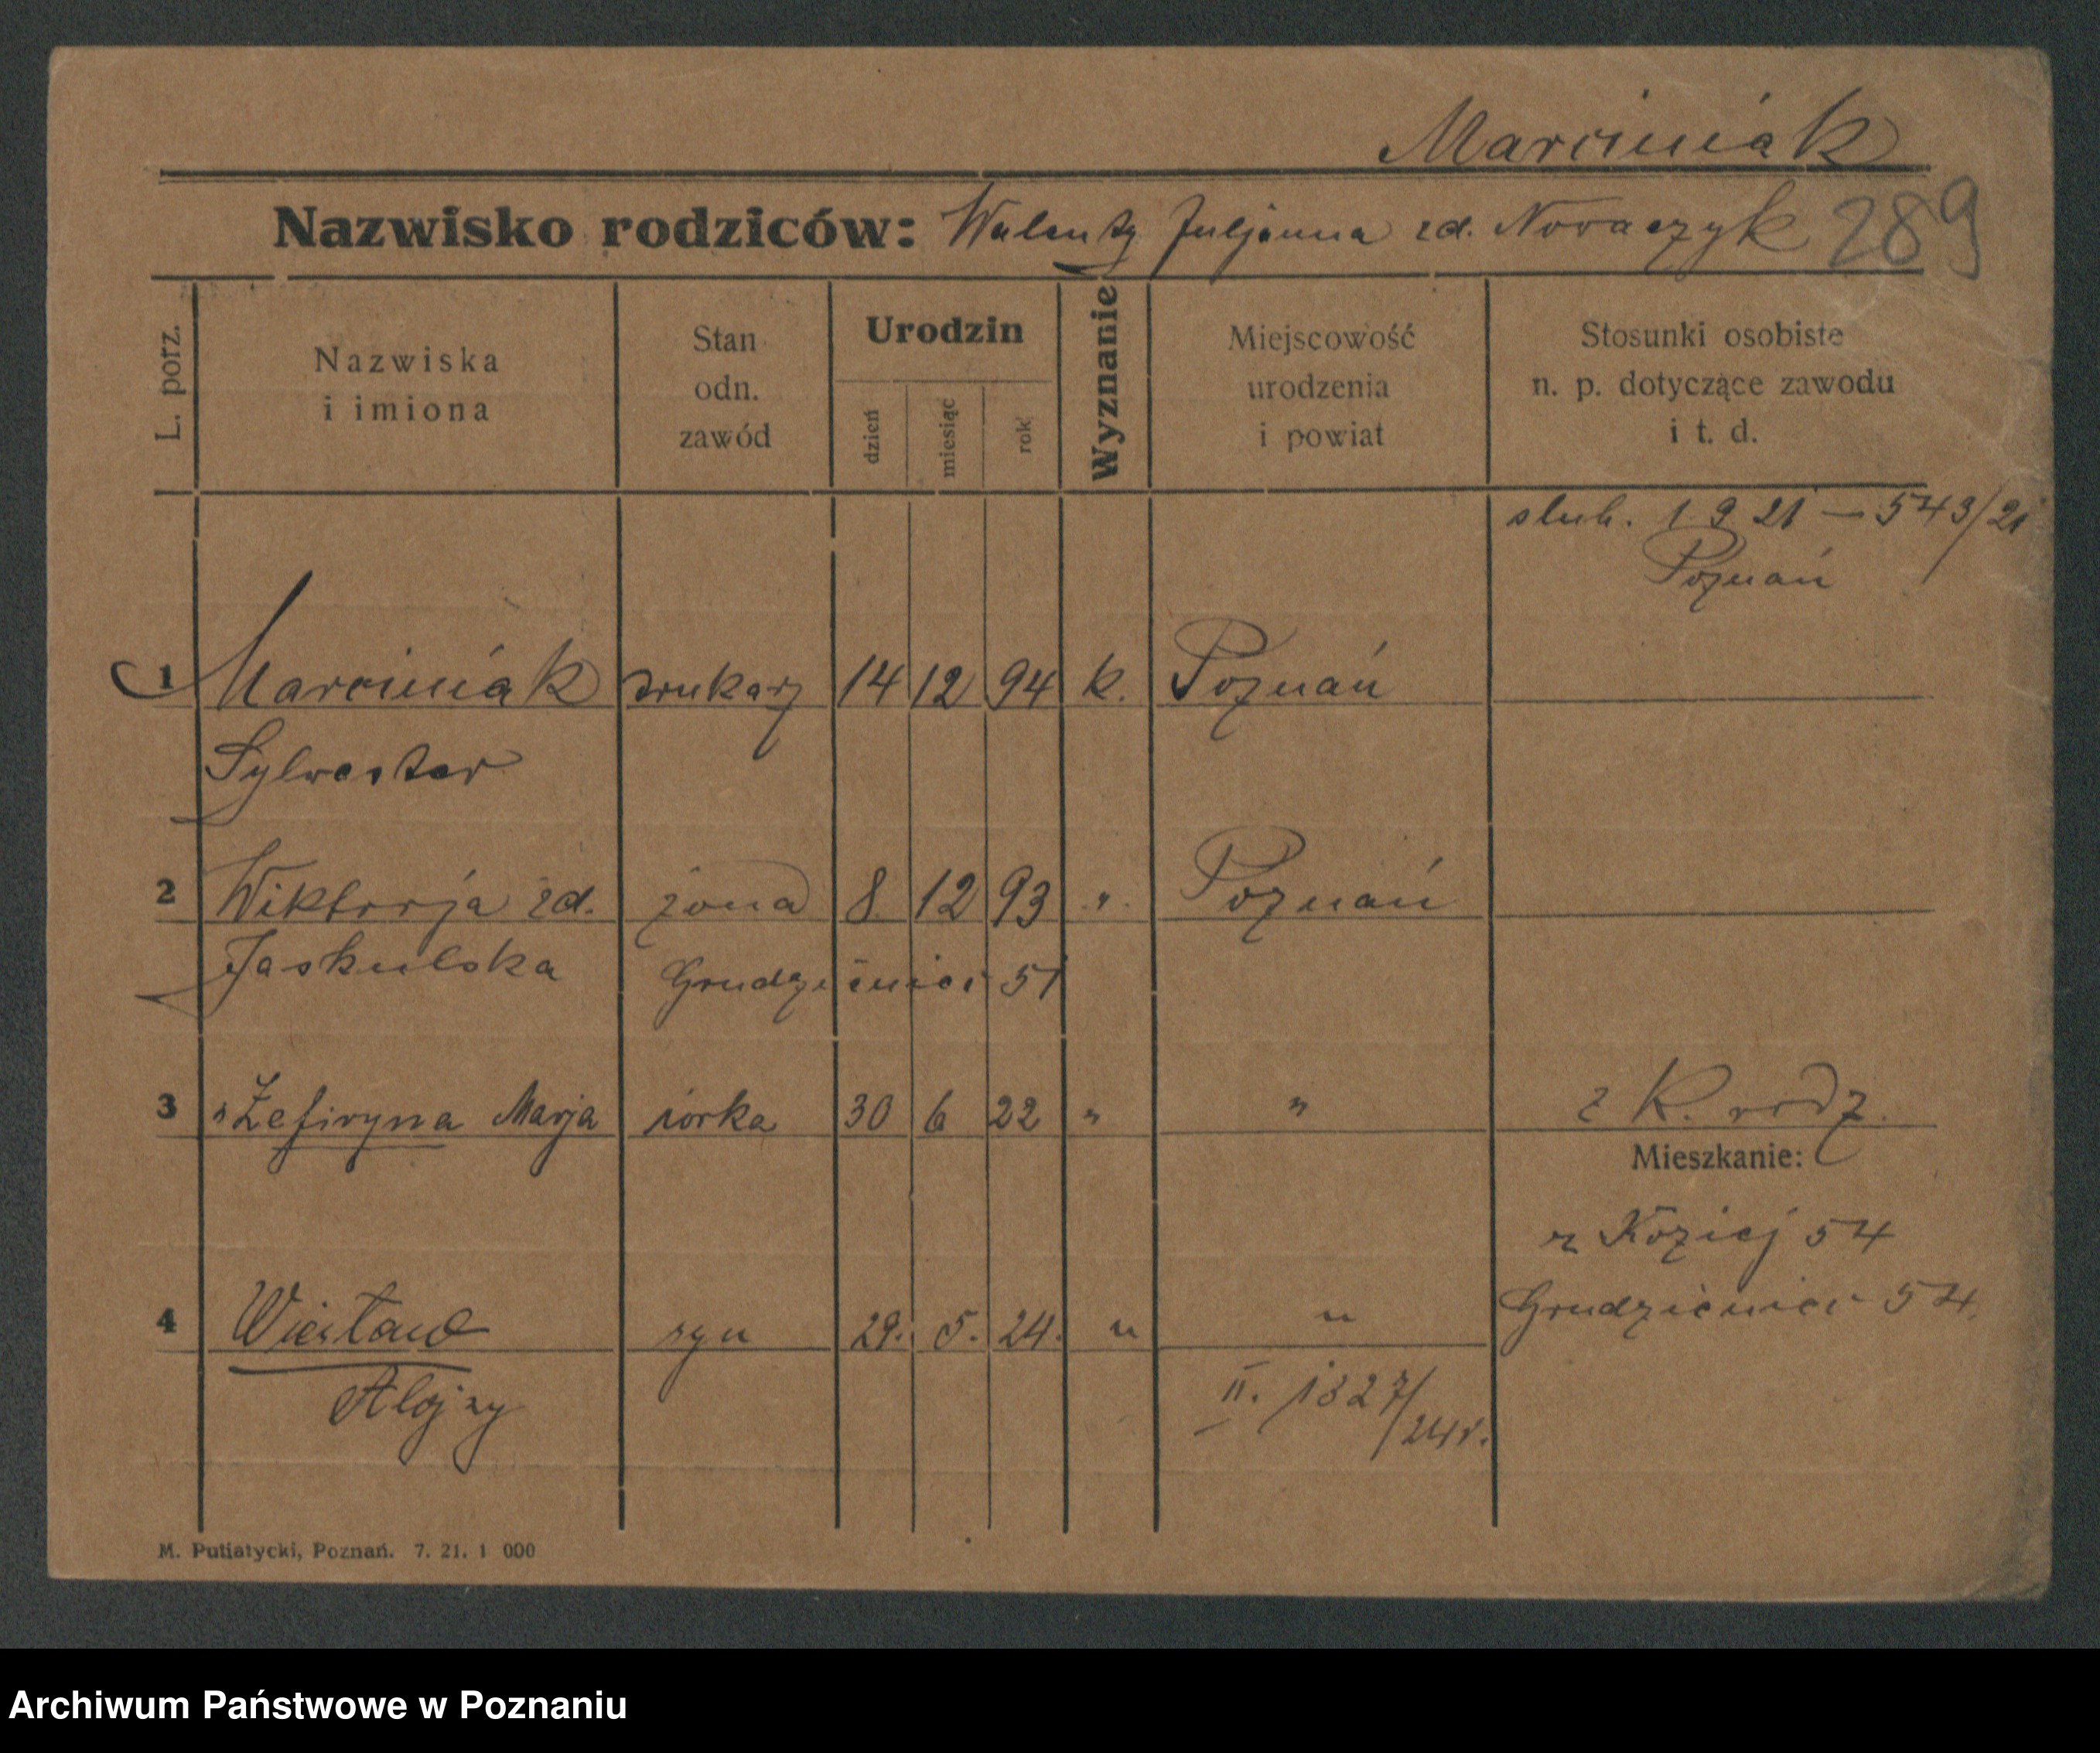 Marciniak
Nazwisko rodziców: Walenty Juljanna zd. Nowaczyk 289
L. porz.
Nazwiska i imiona
Stan odn. zawód
Urodzin
dzień miesiąc rok
Wyznanie
Miejscowość urodzenia i powiat
Stosunki osobiste n. p. dotyczące zawodu i t. d.
slub. 1921 — 543/21
Poznań
1 Marciniak drukarz 14 12 94 k. Poznań
Sylwester
2 Wiktorja zd. żona 8 12 93 " Poznań
Jaskulska Grudzieniec 51
3 " Zefiryna Marja córka 30 6 22 " " z K. rodz.
Mieszkanie:
z Koziej 54
Grudzieniec 54.
4 Wiesław syn 29. 5. 24. " "
Alojzy II. 1327/24r.
M. Putiatycki, Poznań. 7. 21. 1 000
Archiwum Państwowe w Poznaniu